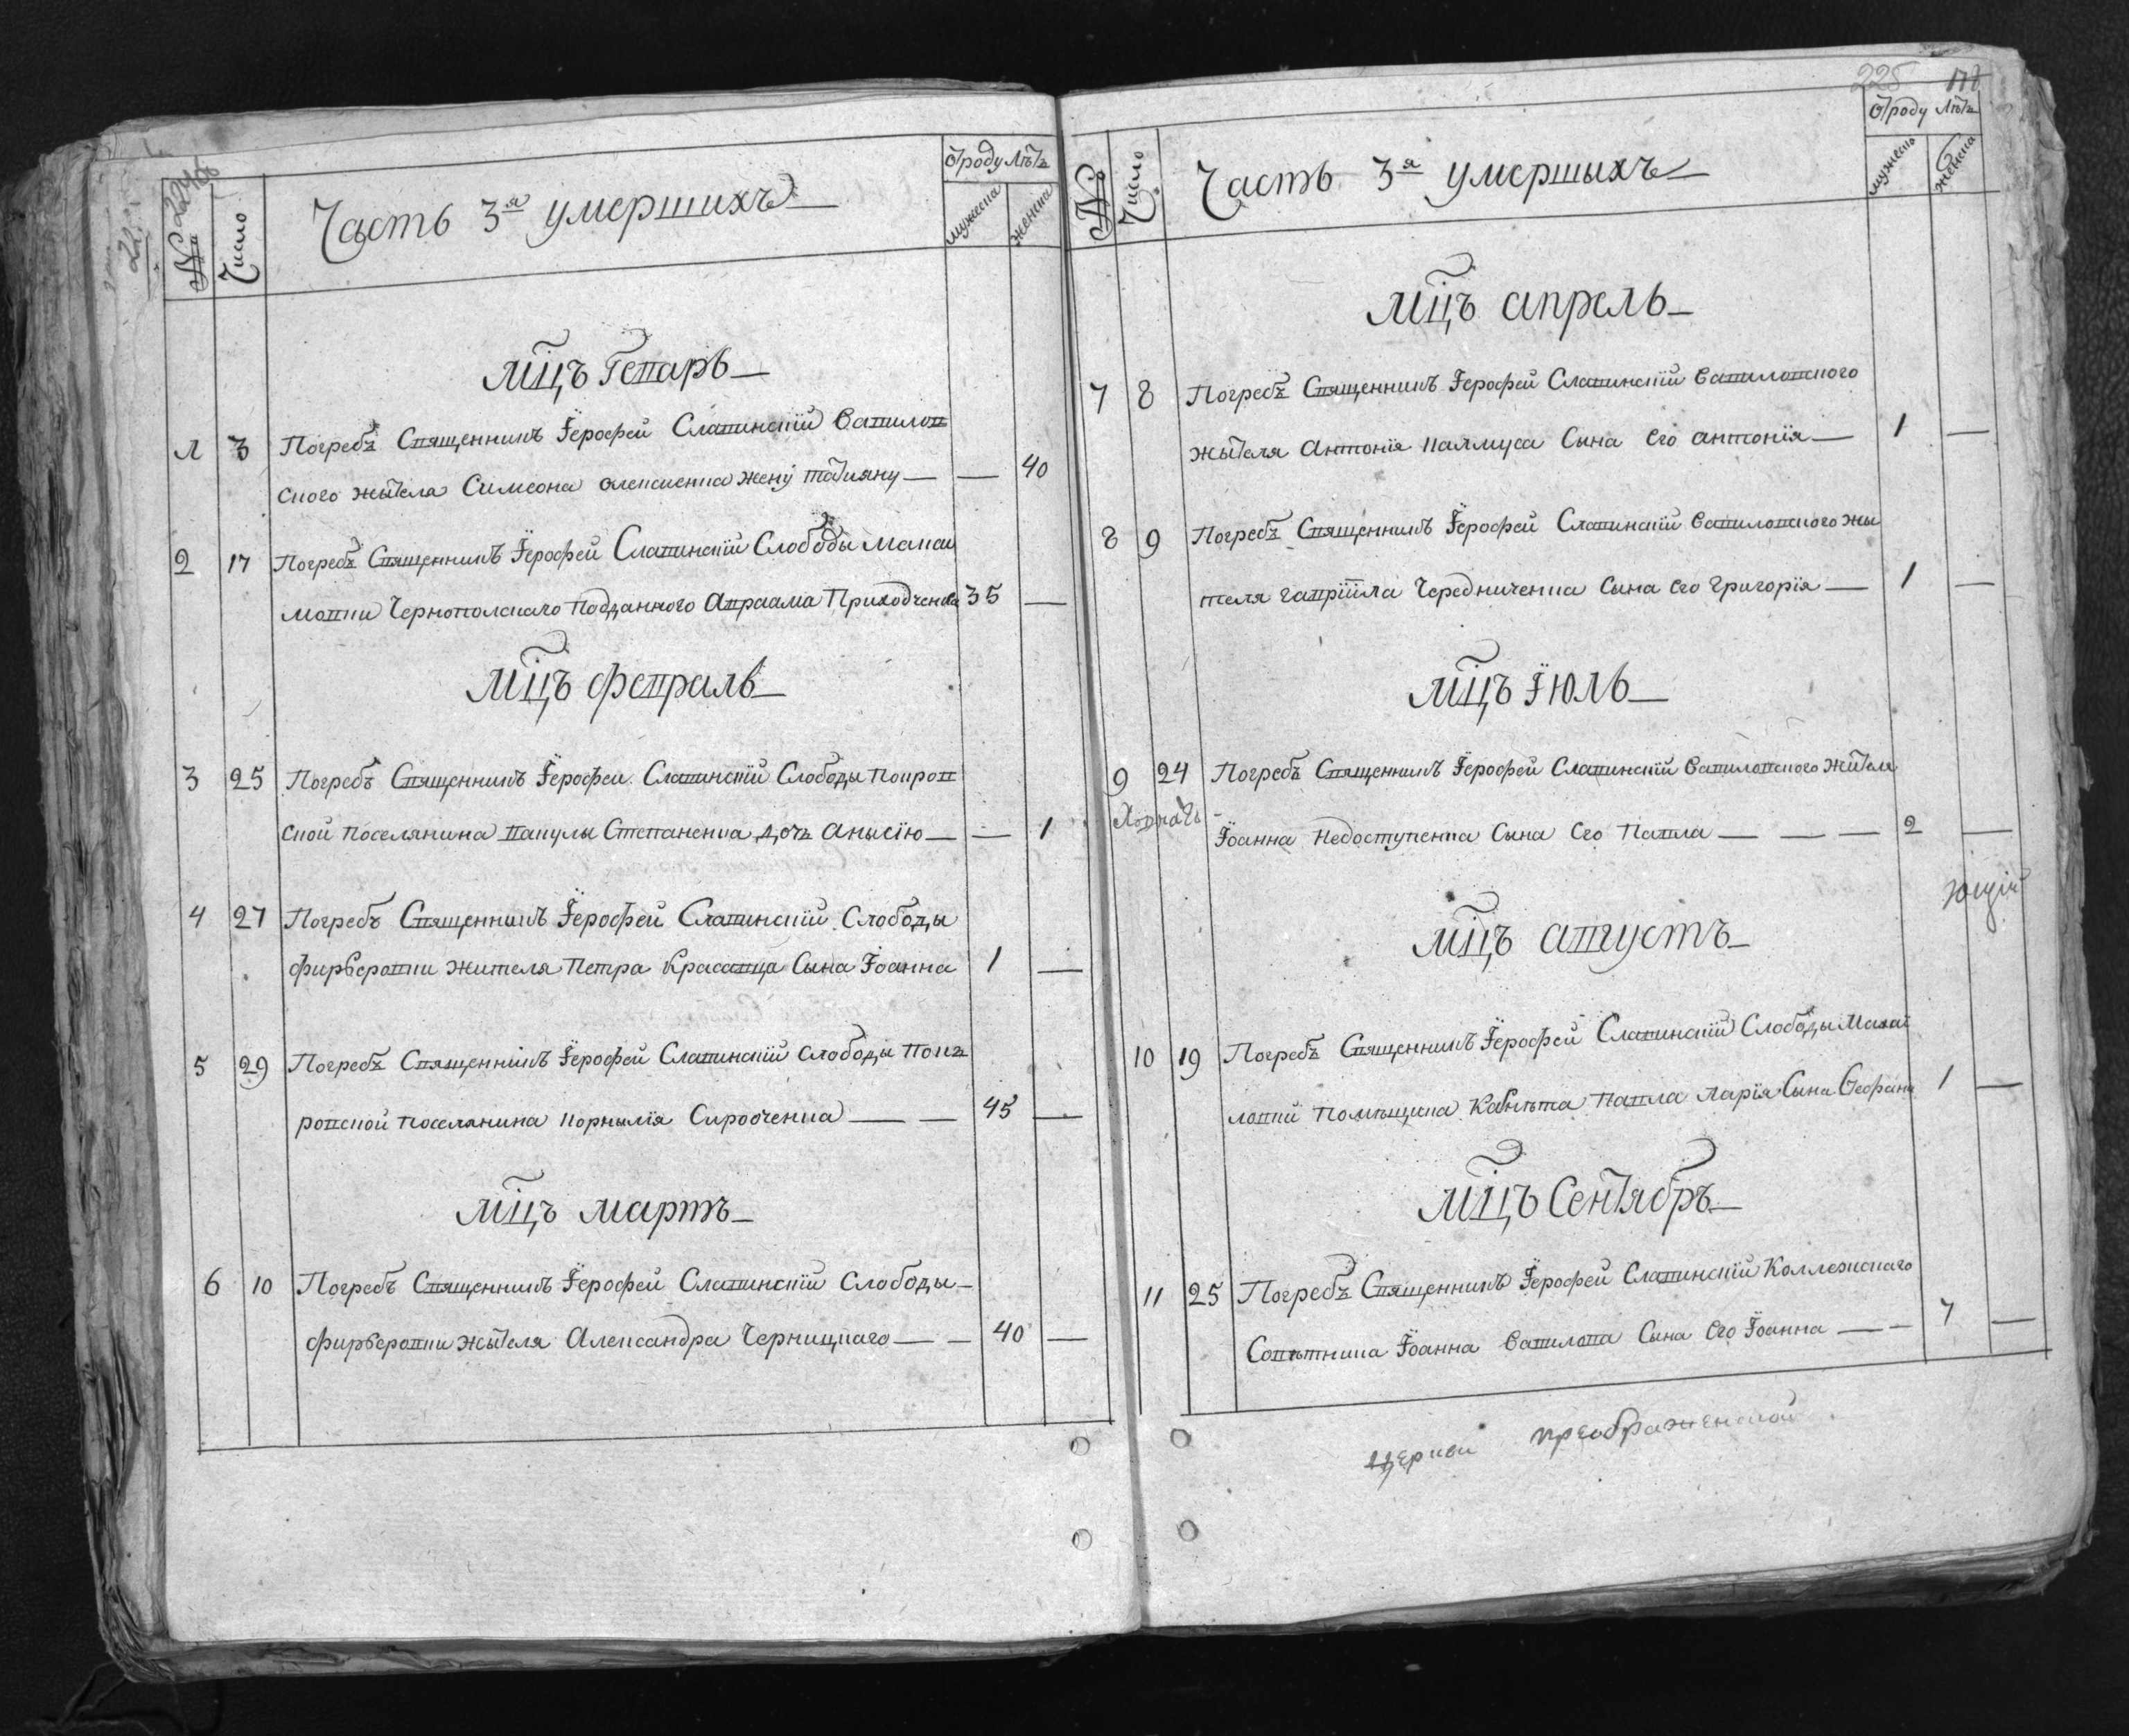 224 об
№ Число Часть 3я умершихъ Ѿроду лѣтъ мужеска женска
Мцъ Генарь
1 3 Погребъ Священникъ Їерофей Славинскїй Вавилов
ского жытеля Симеона Алексиенка жену Татияну — — 40
2 17 Погребъ Священникъ Їерофей Славинскїй Слободы Макси
мовки Чернополскаго подданного Авраама Приходченка 35 —
Мцъ февраль
3 25 Погребъ Священникъ Їерофеи Славинскїй Слободы Покров
ской поселянина Вакулы Степаненка дочь Анысїю — — 1
4 27 Погребъ Священникъ Їерофей Славинскїй Слободы
фирсеровки жителя Петра Красавца Сына Їоанна 1 —
5 29 Погребъ Священникъ Їерофей Славинскїй Слободы Покъ
ровской поселянина Корнылїя Сироченка — — 45 —
Мцъ мартъ
6 10 Погребъ Священникъ Їерофей Славинскїй Слободы —
фирсеровки жытеля Александра Черницкаго — — 40 —
225
№ Число Часть 3я умершыхъ Ѿроду лѣтъ мужеск женска
Мцъ апрель
7 8 Погребъ Священникъ Їерофей Славинскїй Вавиловского
жытеля Антонїя Калмуса Сына Его антонїя — 1 —
8 9 Погребъ Священникъ Їерофей Славинскїй Вавиловского жы
теля гаврїила Чередниченка Сына Его григорїя — 1 —
Мцъ Їюль
9 24 Погребъ Священникъ Їерофей Славинскїй Вавиловского жытеля
Їоанна Недоступенка Сына Его Павла — — — 2 —
Мцъ августъ
10 19 Погребъ Священникъ Їерофей Славинскїй Слободы Михаї
ловки помѣщика Кабнѣта Павла Ларїя Сына Стефана 1 —
Мцъ Сентябръ
11 25 Погребъ Священникъ Їерофей Славинскїй Коллежскаго
Совѣтника Їоанна Вавилова Сына Его Їоанна — — 7 —
Церкви преображенской